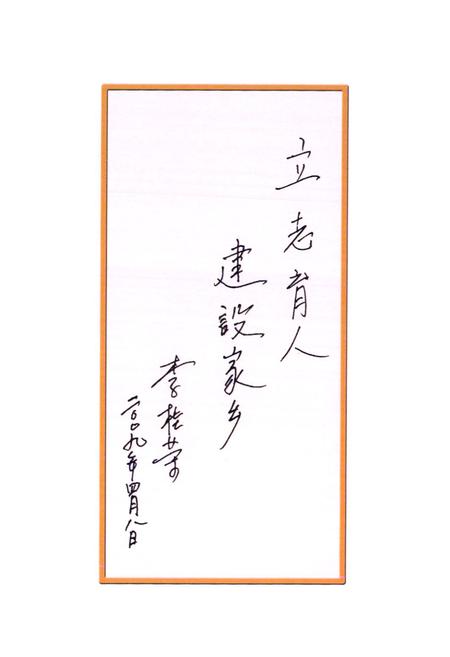 立志育人
建设家乡
李桂荣
二〇〇九年四月八日